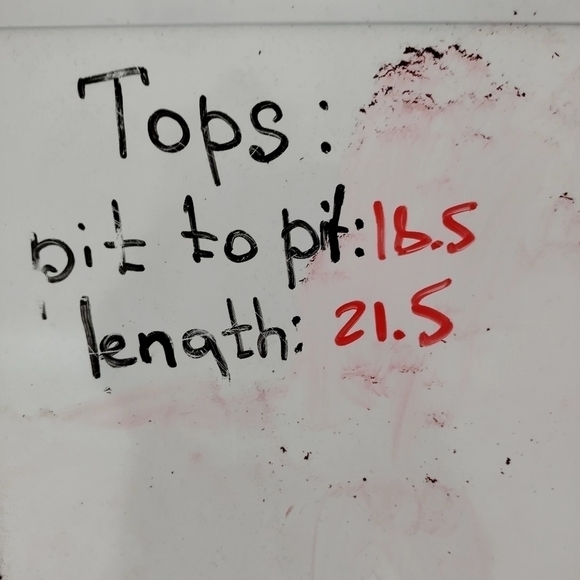 Tops:
pit to pit: 18.5
length: 21.5